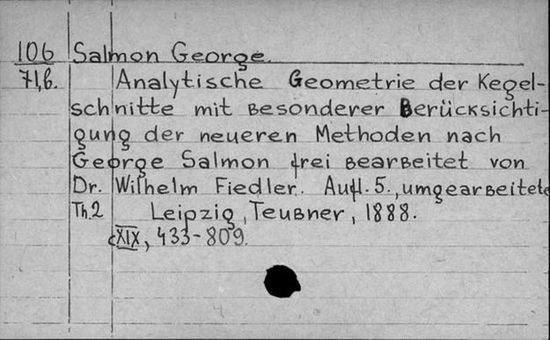 106 Salmon George.
71,6. Analytische Geometrie der Kegel-
schnitte mit besonderer Berücksichti-
gung der neueren Methoden nach
George Salmon frei bearbeitet von
Dr. Wilhelm Fiedler. Aufl. 5., umgearbeitete
Th. 2 Leipzig, Teubner, 1888.
XIX, 433-809.